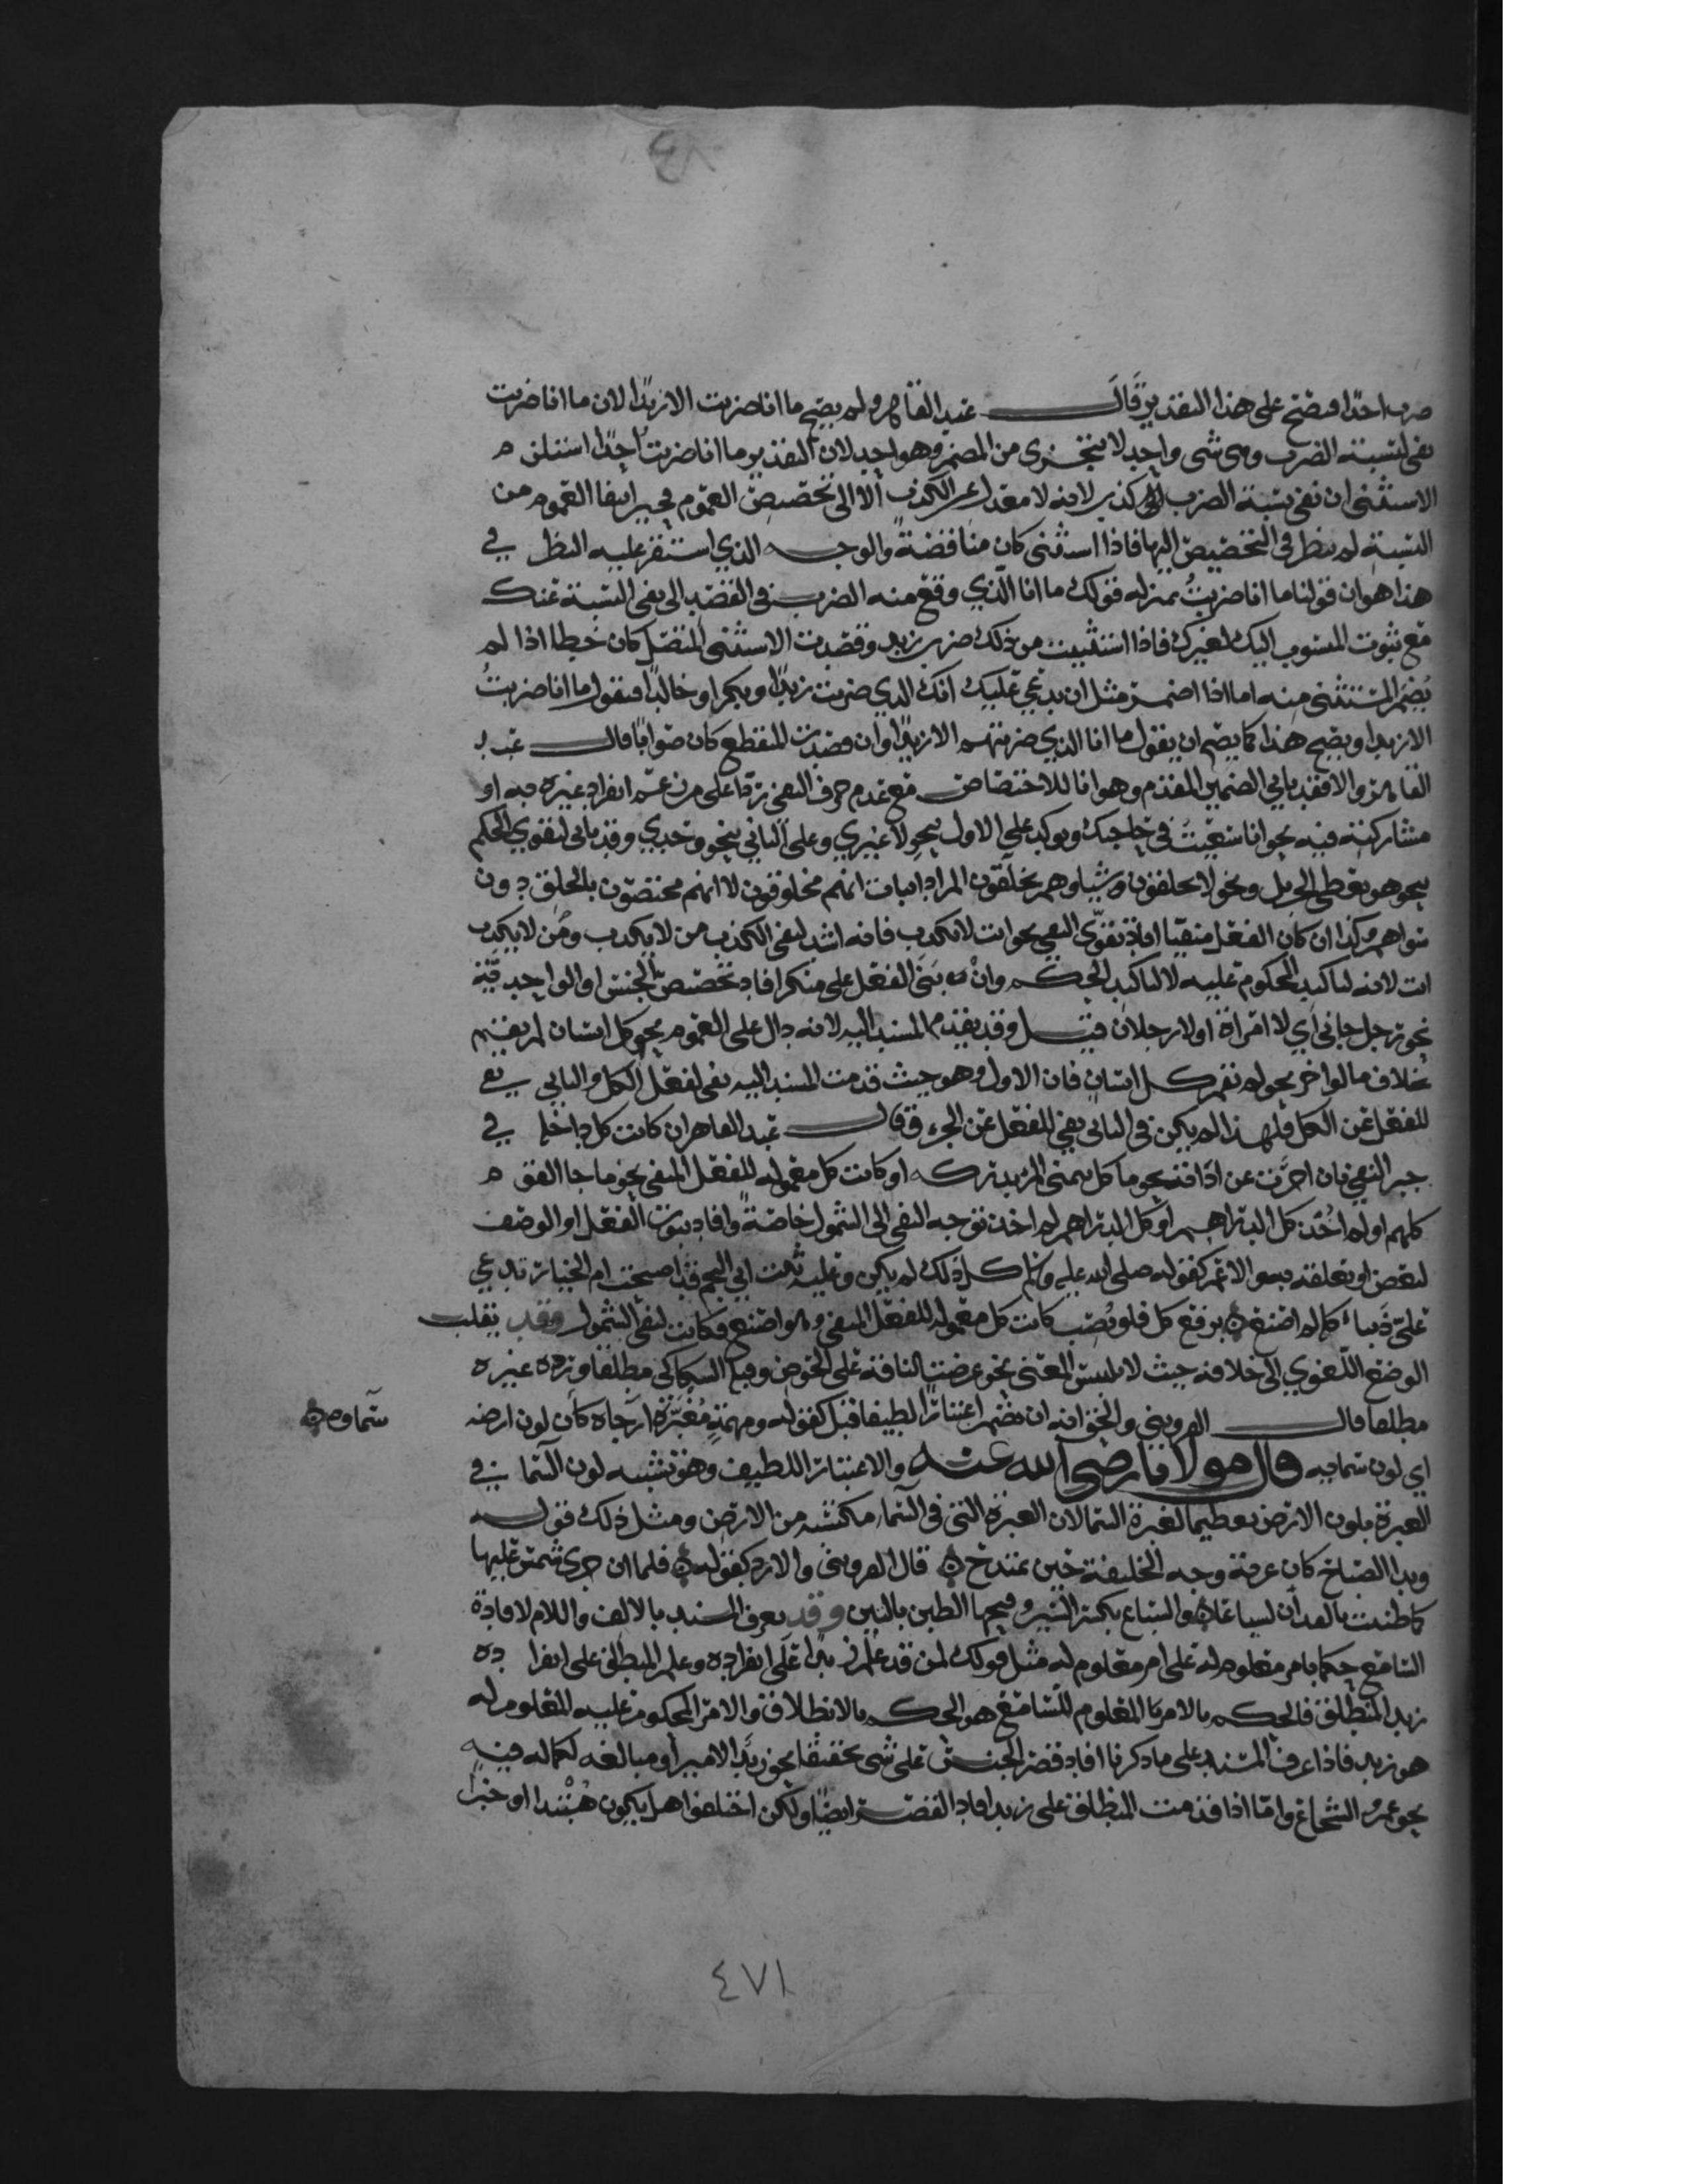 ٤٨
ضرب احدًا فيصح على هذا التقدير قَالَ عبد القاهر ولم يصح ما انا ضربت الا زيدًا لان ما انا ضربت
نفى لنسبة الضرب وهى شى واحد لا يتجزى من المضمر وهو واحد لان التقدير ما انا ضربت احدًا استلزم
الاستثنى ان نفى نسبة الضرب كذب لانه لا معدل عن الكذب الا الى تخصيص العموم فحين انتفا العموم من
النسبة لم ينظر فى التخصيص اليها فاذا استثنى كان مناقضةً والوجه الذي استقر عليه النظر في
هذا هو ان قولنا ما انا ضربتُ بمنزلة قولك ما انا الذي وقع منه الضرب فى القصد الى نفى النسبة عنك
مع ثبوت المنسوب اليك لغيرك فاذا استثنيت من ذلك ضرب زيد وقصدت الاستثنى المتصل كان خطا اذا لم
يُضمر المستثنى منه اما اذا اضمر مثل ان يدعي عليك انك الذي ضربت زيدًا وبكرا وخالدًا فتقول ما انا ضربتُ
الا زيدا ويصح هذا كما يصح ان يقول ما انا الذي ضربتهم الا زيدًا وان قصدت المنقطع كان صوابًا قال عبد
القاهر والا فقد ياتي الضمير المقدم وهو انا للاختصاص مع عدم حرف النفي ردًا على من زعم انفراد غيره به او
مشاركته فيه نحو انا سعيتُ في حاجتك ويوكد على الاول بنحو لا غيري وعلى الثاني بنحو وحدي وقد ياتى لتقوي الحكم
نحو هو يعطي الجزيل ونحو لا يخلقون شيا وهم يخلقون المراد اثبات انهم مخلوقون لا انهم مختصون بالخلق دون
سواهم وكذا ان كان الفعل منفيًا افاد تقوّى النفي نحو انت لا تكذب فانه اشد لنفى الكذب من لا تكذب ومن لا تكذب
انت لانه لتاكيد المحكوم عليه لا لتاكيد الحكم وانْ بُنَى الفعل على منكر افاد تخصيص الجنس او الواحد فيه
نحو رجل جانى اي لا امراة او لا رجلان قيل وقد يقدم المسند اليه لانه دال على العموم نحو كل انسان لم يقم
بخلاف ما لو اخر نحو لم يقم كل انسان فان الاول وهو حيث قدمت المسند اليه نفى لفعل الكل والثاني نفي
للفعل عن الكل فلهذا لم يكن فى الثانى نفي للفعل عن الجزء وقال عبد القاهر ان كانت كل داخلة في
حيز النفي بان اخرت عن اداته نحو ما كل يتمنى المرء يدركه او كانت كل معمولة للفعل المنفى نحو ما جا القوم
كلهم او لم اخذ كل الدراهم او كل الدراهم لم اخذ توجه النفى الى الشمول خاصةً وافاد ثبوت الفعل او الوصف
لبعض او تعلقه به والا عم كقوله صلى الله عليه وسلم كل ذلك لم يكن وعليه بيت ابي النجم قد اصبحت ام الخيار تدعي
عليّ ذَنباً كله لم اصنع برفع كل فلو نُصِب كانت كل معمولة للفعل المنفي وهو اصنع فكانت لنفي الشمول وقد يقلب
الوضع اللغوي الى خلافه حيث لا يلبس المعنى نحو عرضت الناقة على الحوض وقبله السكاكى مطلقا ورده غيره
مطلقا قال القزويني والحق انه ان تضمن اعتبارًا لطيفا قبل كقوله ومهمهٍ مُغبَرّةٍ ارجاه كأن لون ارضه
سماوه
اي لون سمايه قال مولانا رضي الله عنه والاعتبار اللطيف وهو تشبيه لون السما في
الغبرة بلون الارض تعظيما لغبرة السما لان الغبرة التى في السما مكتسبه من الارض ومثل ذلك قول
وبدا الصباح كان غرته وجه الخليفة حين يمتدح قال القزوينى والا رد كقوله فلما ان جرى سمن عليها
كما طينت بالفدان السياعا والسياع بكسر السين وفتحها الطين بالتبن وقد يعرف المسند بالالف واللام لافادة
السامع حكما بامر معلوم له على امر معلوم له مثل قولك لمن قد علم زيدا على انفراده وعلم المنطلق على انفراده
زيد المنطلق فالحكم بالامر المعلوم للسامع هو الحكم بالانطلاق والامر المحكوم عليه المعلوم له
هو زيد فاذا عرف المسند على ما ذكرنا افاد قصر الجنس على شى تحقيقا نحو زيدٌ الامير او مبالغه لكماله فيه
نحو عمرو الشجاع واما اذا قدمت المنطلق على زيد افاد القصر ايضًا ولكن اختلفوا هل يكون مُبتدا او خبرا
٤٧١